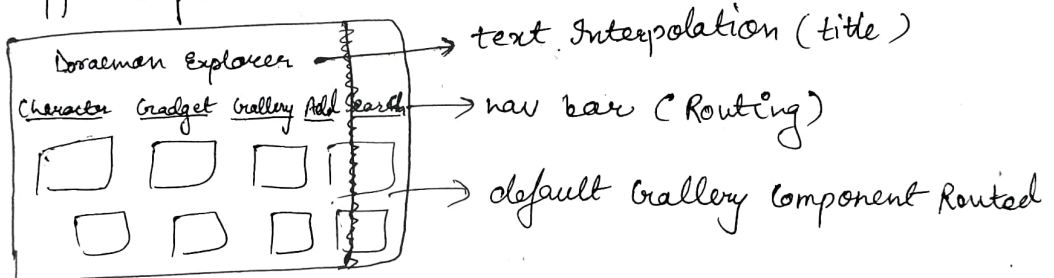 Doraeman Explorer → text Interpolation (title)
Character Gadget Gallery Add Search → nav bar (Routing)
→ default Gallery Component Routed